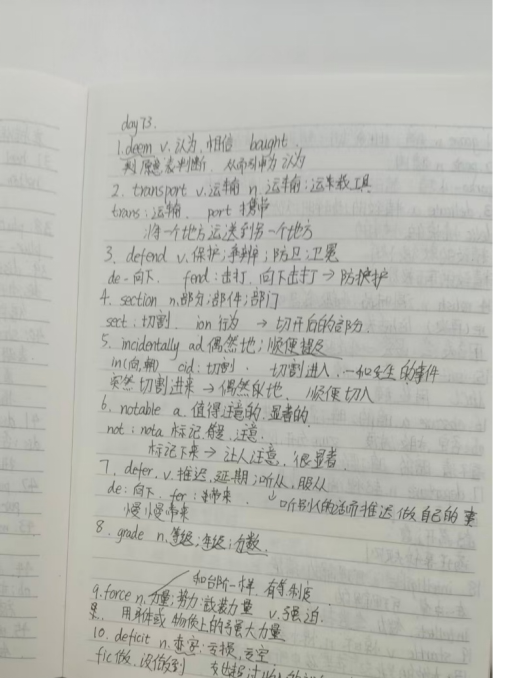 day73.
1.deem v.认为,相信
原意表判断, 从而引申为认为
2. transport v.运输 n.运输;运输工具
trans:运输, port 携带
将一个地方运送到另一个地方
3. defend v.保护;辩护;防卫;卫冕
de-向下, fend:击打,向下击打→防护
4. section n.部分;部件;部门
sect:切割, ion行为 →切开后的部分
5. incidentally ad.偶然地;顺便提及
in(向,朝) cid:切割, 切割进入,一和发生的事件
突然切割进来→偶然地, 顺便切入
6. notable a.值得注意的,显著的
not:nota 标记, 注意.
标记下来→让人注意,很显著.
7. defer. v.推迟,延期;听从,服从
de:向下, fer:带来. ↓听别人的话而推迟做自己的事
慢慢带来
8. grade n.等级;年级;分数.
和台阶一样,有等制度.
9.force n.力量;势力;武装力量 v.强迫.
用身体或物质上的强大力量
10. deficit n.赤字;亏损,亏空
fic做,没做到